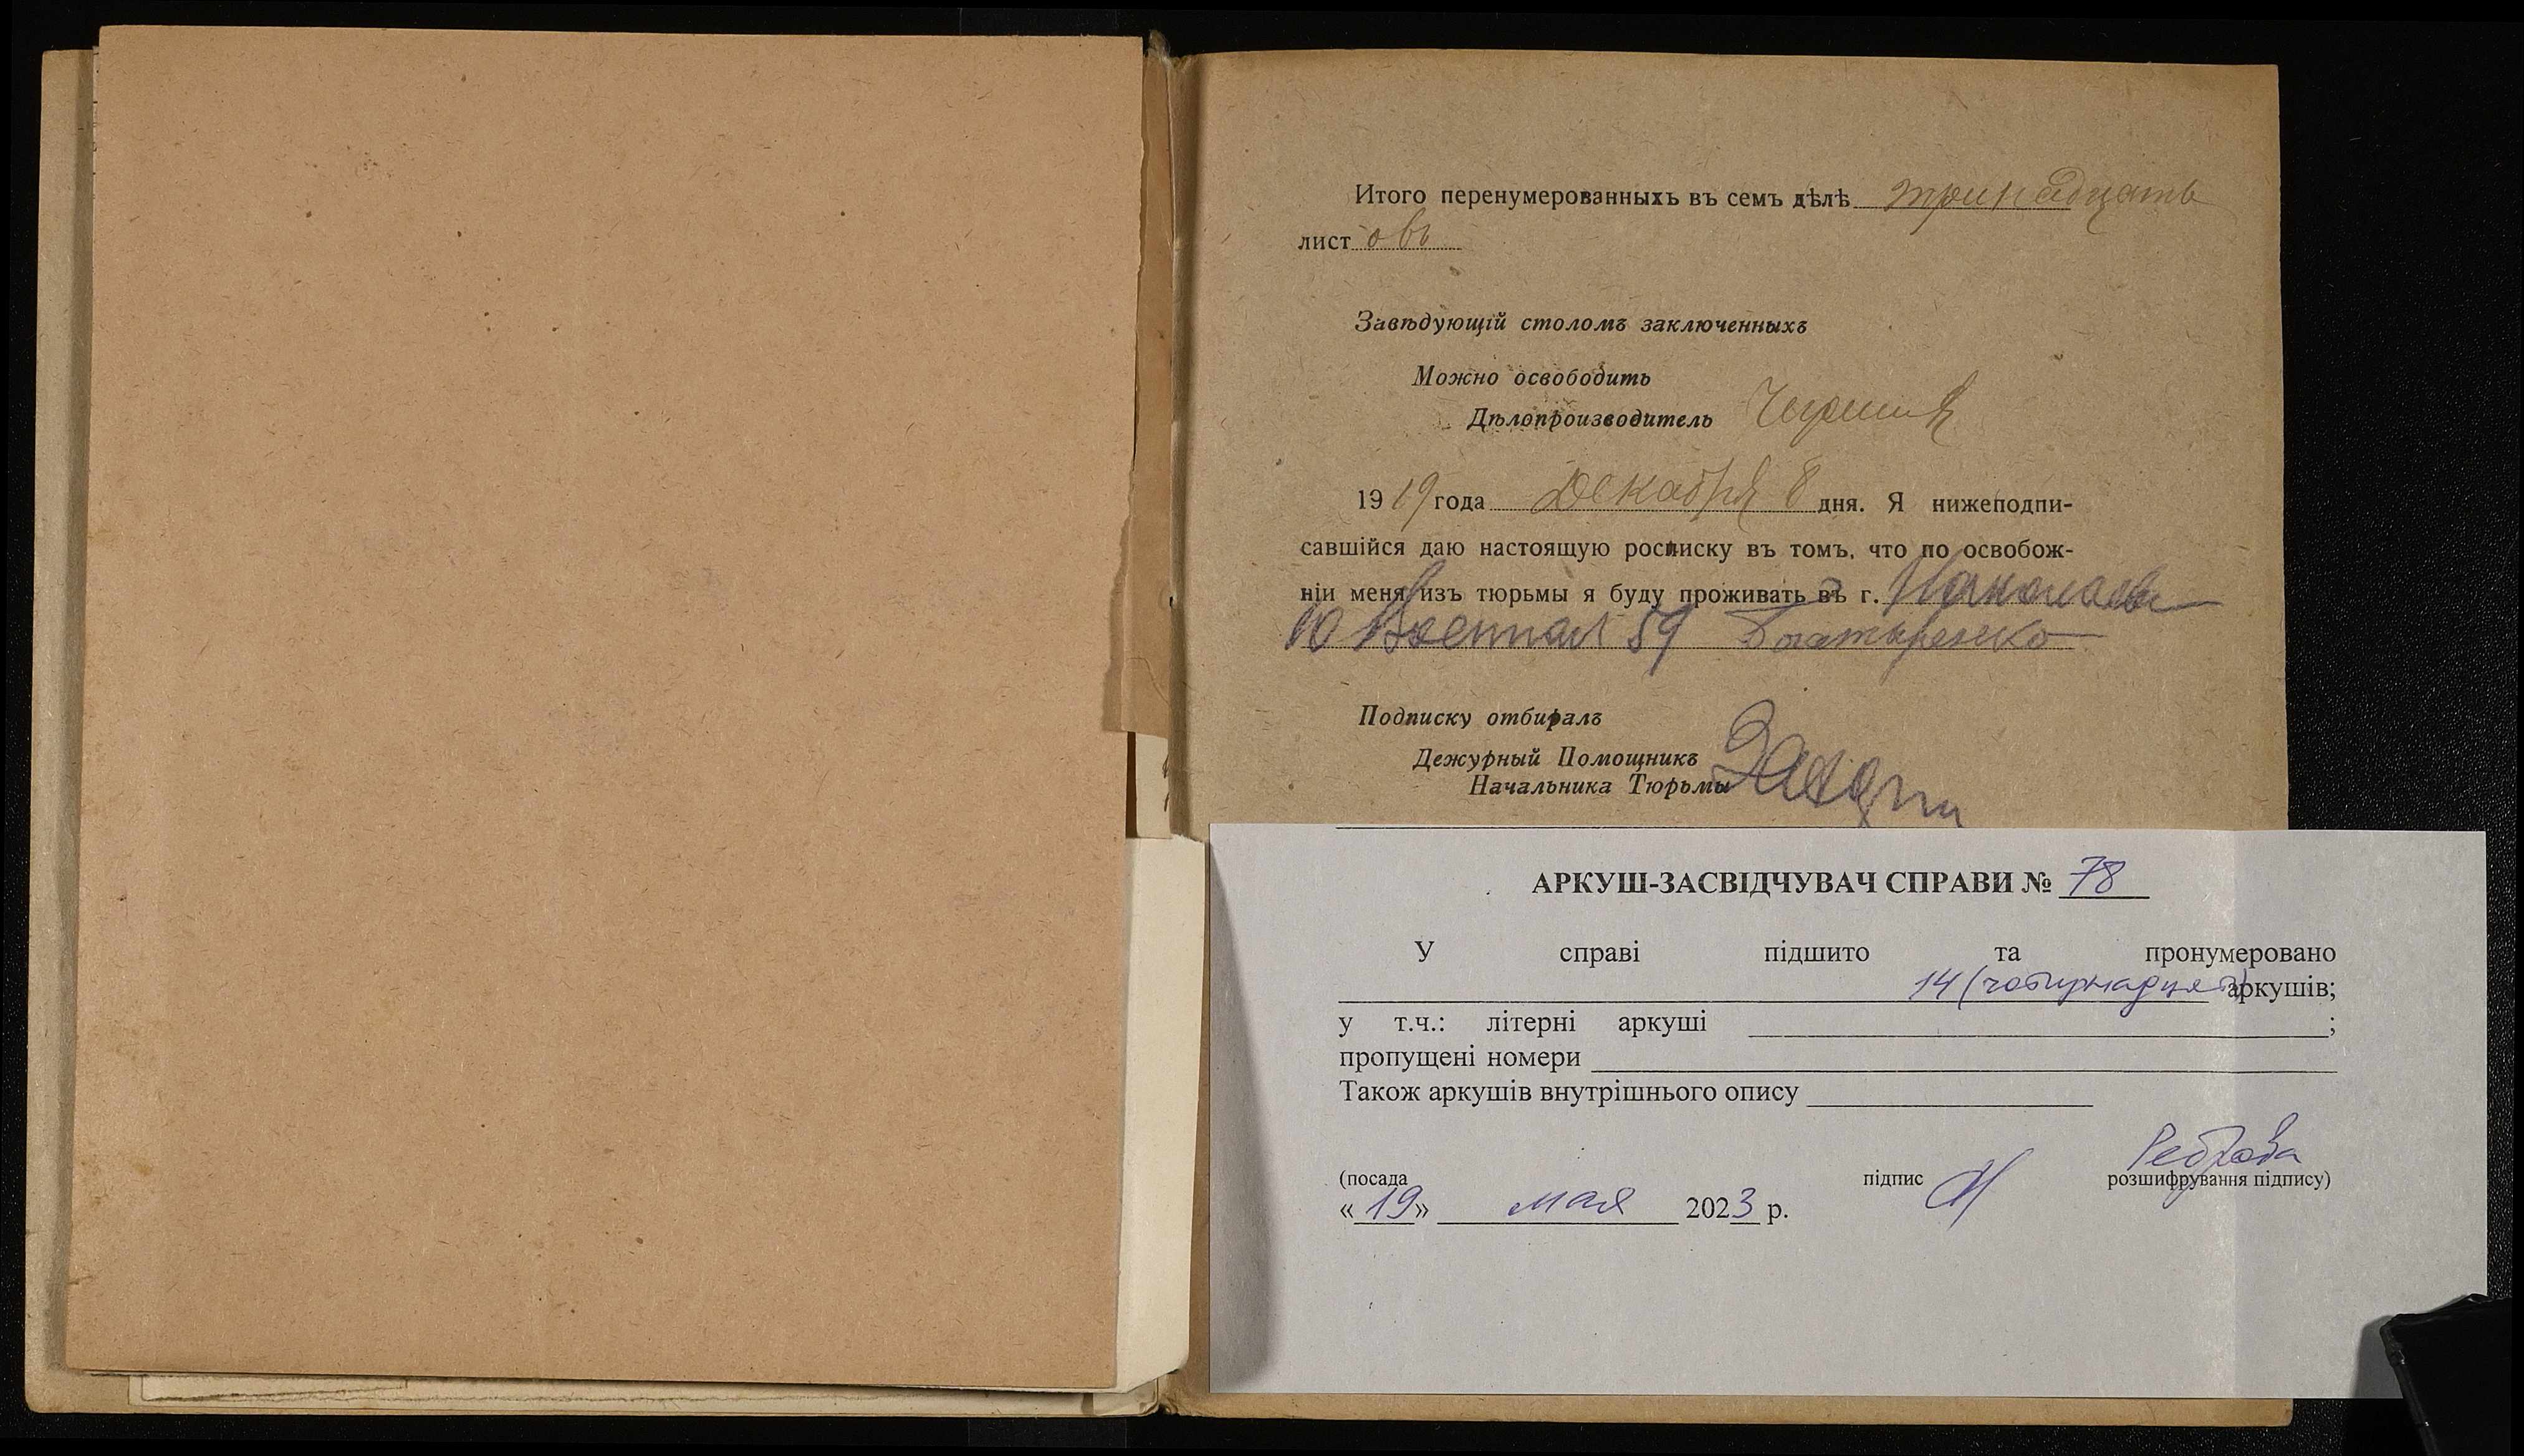 Итого перенумерованныхъ въ семъ дѣлѣ тринадцать
лист овъ
Завѣдующій столомъ заключенныхъ
Можно освободить
Дѣлопроизводитель
1919 года Декабря 8 дня. Я нижеподпи-
савшійся даю настоящую росписку въ томъ, что по освобож-
ніи меня изъ тюрьмы я буду проживать въ г. Николаевѣ
10 Военная 59 Богатыренко
Подписку отбиралъ
Дежурный Помощникъ
Начальника Тюрьмы
АРКУШ-ЗАСВІДЧУВАЧ СПРАВИ № 78
У справі підшито та пронумеровано
14 (чотирнадцять) аркушів;
у т.ч.: літерні аркуші ;
пропущені номери
Також аркушів внутрішнього опису
Реброва
(посада підпис розшифрування підпису)
«19» мая 2023 р.